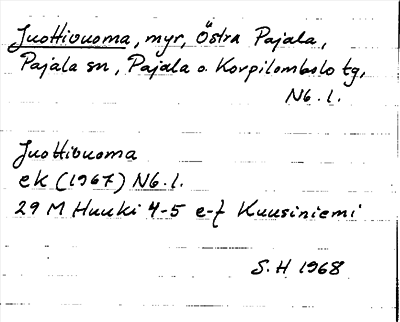 Juottivuoma, myr, Östra Pajala,
Pajala sn, Pajala o. Korpilombolo tg,
Nb. l.
Juottivuoma
ek (1967) Nb. l.
29 M Huuki 4-5 e-f Kuusiniemi
S. H 1968